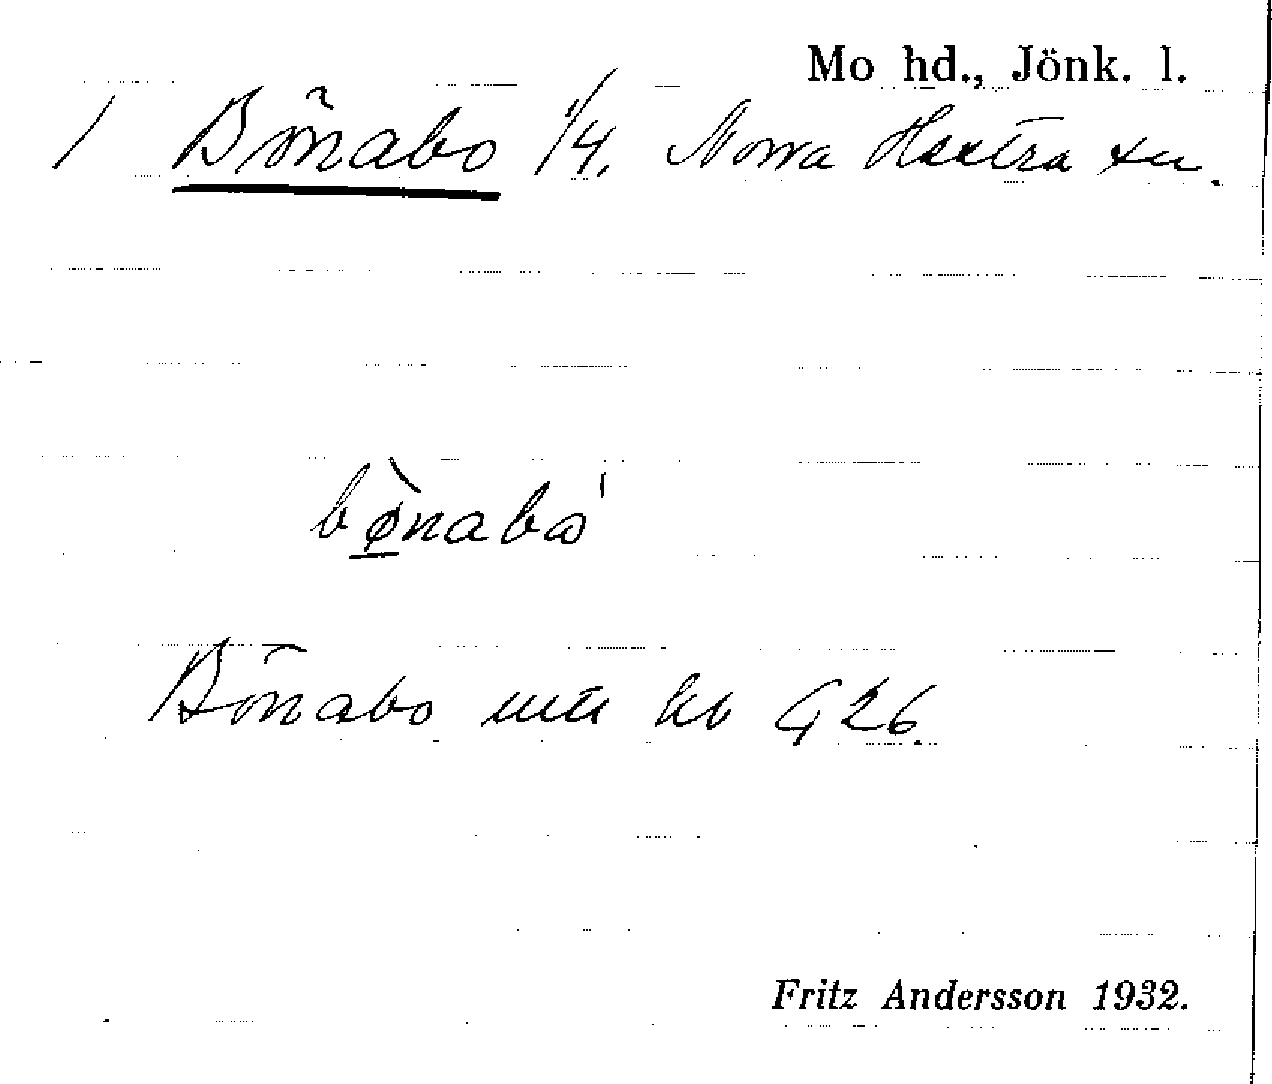 Mo hd., Jönk. l.
1 Bönabo 1/4. Norra Hestra sn.
bø̀nabo'
Bönabo mtl kb G 26.
Fritz Andersson 1932.